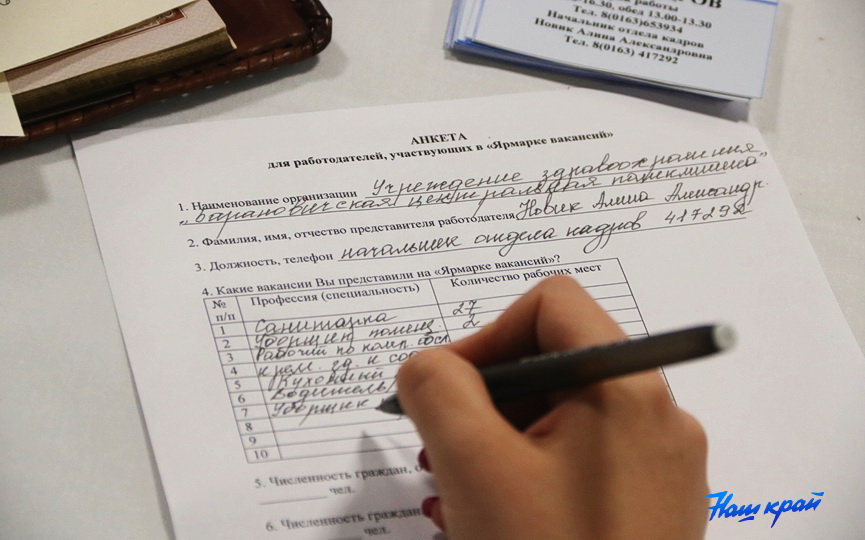 ОВ
работы
16.30, обед 13.00-13.30
Тел. 8(0163)653934
Начальник отдела кадров
Новик Алина Александровна
Тел. 8(0163) 417292
АНКЕТА
для работодателей, участвующих в «Ярмарке вакансий»
1. Наименование организации Учреждение здравоохранения
„Барановичская центральная поликлиника”
2. Фамилия, имя, отчество представителя работодателя Новик Алина Александр.
3. Должность, телефон начальник отдела кадров 417292
4. Какие вакансии Вы представили на «Ярмарке вакансий»?
№ п/п Профессия (специальность) Количество рабочих мест
1 Санитарка 27
2 Уборщик помещ. 2
3 Рабочий по комп. обсл
4 и рем. зд. и соо
5 Кухонный
6 Водитель
7 Уборщик
8
9
10
5. Численность граждан,
чел.
6. Численность граждан
чел.
Наш край